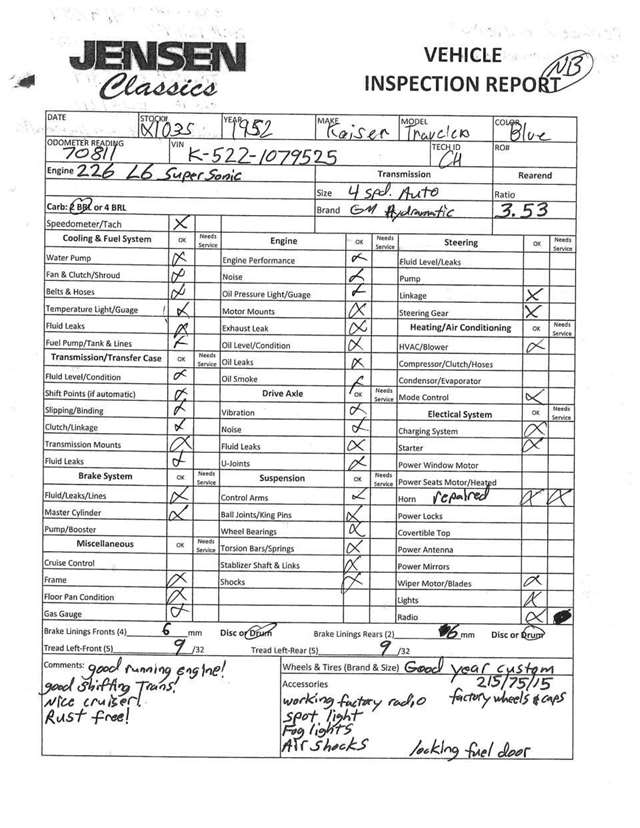 JENSEN
Classics
VEHICLE
INSPECTION REPORT
NB
DATE STOCK# X1035 YEAR 1952 MAKE Kaiser MODEL Traveler COLOR Blue
ODOMETER READING 70811 VIN K-522-1079525 TECH ID CH RO#
Engine 226 L6 SuperSonic Transmission Rearend
Size 4 spd. Auto Ratio
Carb: 2 BRL or 4 BRL Brand GM Hydramatic 3.53
Speedometer/Tach X
Cooling & Fuel System OK Needs Service Engine OK Needs Service Steering OK Needs Service
Water Pump X Engine Performance X Fluid Level/Leaks
Fan & Clutch/Shroud X Noise X Pump
Belts & Hoses X Oil Pressure Light/Guage X Linkage X
Temperature Light/Guage X Motor Mounts X Steering Gear X
Fluid Leaks X Exhaust Leak X Heating/Air Conditioning OK Needs Service
Fuel Pump/Tank & Lines X Oil Level/Condition X HVAC/Blower X
Transmission/Transfer Case OK Needs Service Oil Leaks X Compressor/Clutch/Hoses
Fluid Level/Condition X Oil Smoke X Condensor/Evaporator
Shift Points (if automatic) X Drive Axle OK Needs Service Mode Control X
Slipping/Binding X Vibration X Electical System OK Needs Service
Clutch/Linkage X Noise X Charging System X
Transmission Mounts X Fluid Leaks X Starter X
Fluid Leaks X U-Joints X Power Window Motor
Brake System OK Needs Service Suspension OK Needs Service Power Seats Motor/Heated
Fluid/Leaks/Lines X Control Arms X Horn repaired X X
Master Cylinder X Ball Joints/King Pins X Power Locks
Pump/Booster Wheel Bearings X Covertible Top
Miscellaneous OK Needs Service Torsion Bars/Springs X Power Antenna
Cruise Control Stablizer Shaft & Links X Power Mirrors
Frame X Shocks X Wiper Motor/Blades X
Floor Pan Condition X Lights X
Gas Gauge X Radio X
Brake Linings Fronts (4) 6 mm Disc or Drum Brake Linings Rears (2) 6 mm Disc or Drum
Tread Left-Front (5) 9 /32 Tread Left-Rear (5) 9 /32
Comments: good running engine!
good Shifting Trans!
Nice cruiser!
Rust free!
Wheels & Tires (Brand & Size) Good year custom
215/75/15
factory wheels & caps
Accessories
working factory radio
spot light
Fog lights
Air shocks
locking fuel door